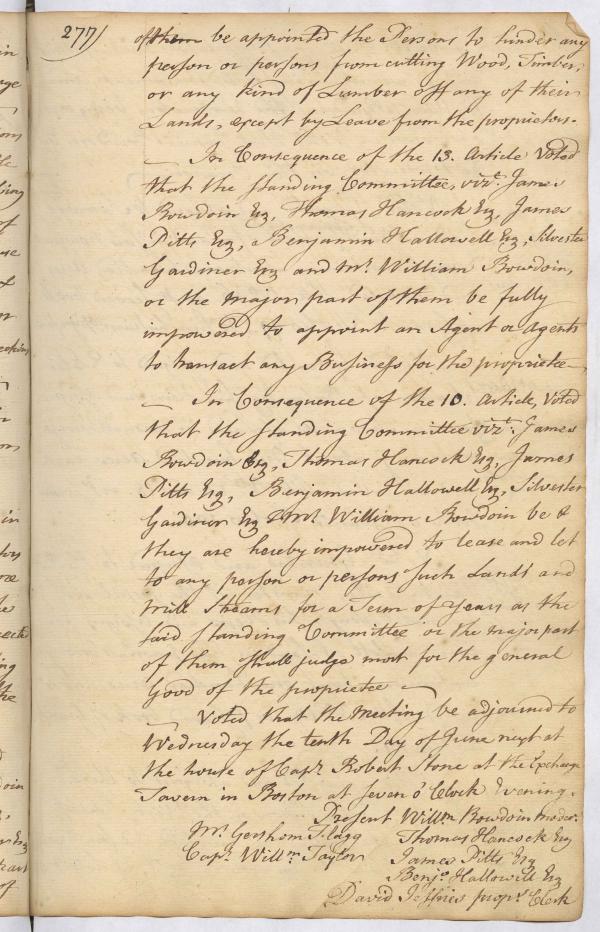 277/
of them be appointed the Persons to hinder any
person or persons from cutting Wood, Timber,
or any kind of Lumber off any of their
Lands, except by Leave from the proprietors.
— In Consequence of the 13. Article Voted
that the Standing Committee, vizt. James
Bowdoin Esq, Thomas Hancock Esq, James
Pitts Esq, Benjamin Hallowell Esq, Silvester
Gardiner Esq and Mr. William Bowdoin,
or the major part of them be fully
impowered to appoint an Agent or Agents
to transact any Business for the proprietee—
— In Consequence of the 10. Article, Voted
that the Standing Committee vizt: James
Bowdoin Esq, Thomas Hancock Esq, James
Pitts Esq, Benjamin Hallowell Esq, Silvester
Gardiner Esq & Mr. William Bowdoin be &
they are hereby impowered to lease and let
to any person or persons such Lands and
Mill Streams for a Term of Years as the
said Standing Committee or the major part
of them shall judge most for the general
Good of the proprietee —
— Voted that the Meeting be adjourned to
Wednesday the tenth Day of June next at
the house of Capt. Robert Stone at the Exchange
Tavern in Boston at Seven o'Clock Evening.
Present Willm Bowdoin moder.
Mr. Gershom Flagg Thomas Hancock Esq
Capt. Willm Taylor James Pitts Esq
Benjn. Hallowell Esq
David Jeffries propr. Clerk